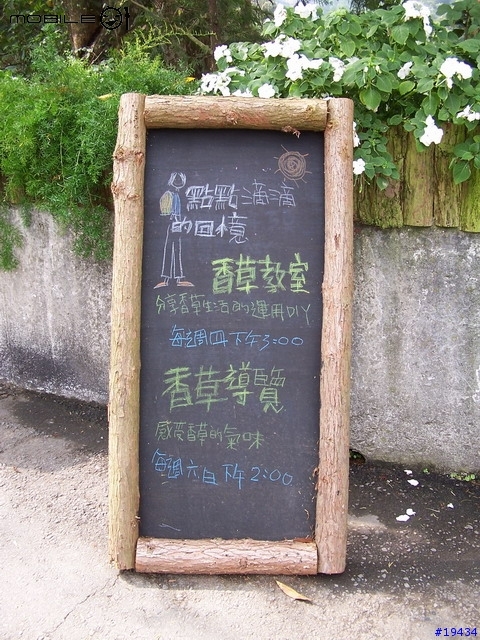 mobile01
點點滴滴
的回憶
香草教室
分享香草生活的運用DIY
每週四下午3:00
香草導覽
感受香草的氣味
每週六日下午2:00
#19434